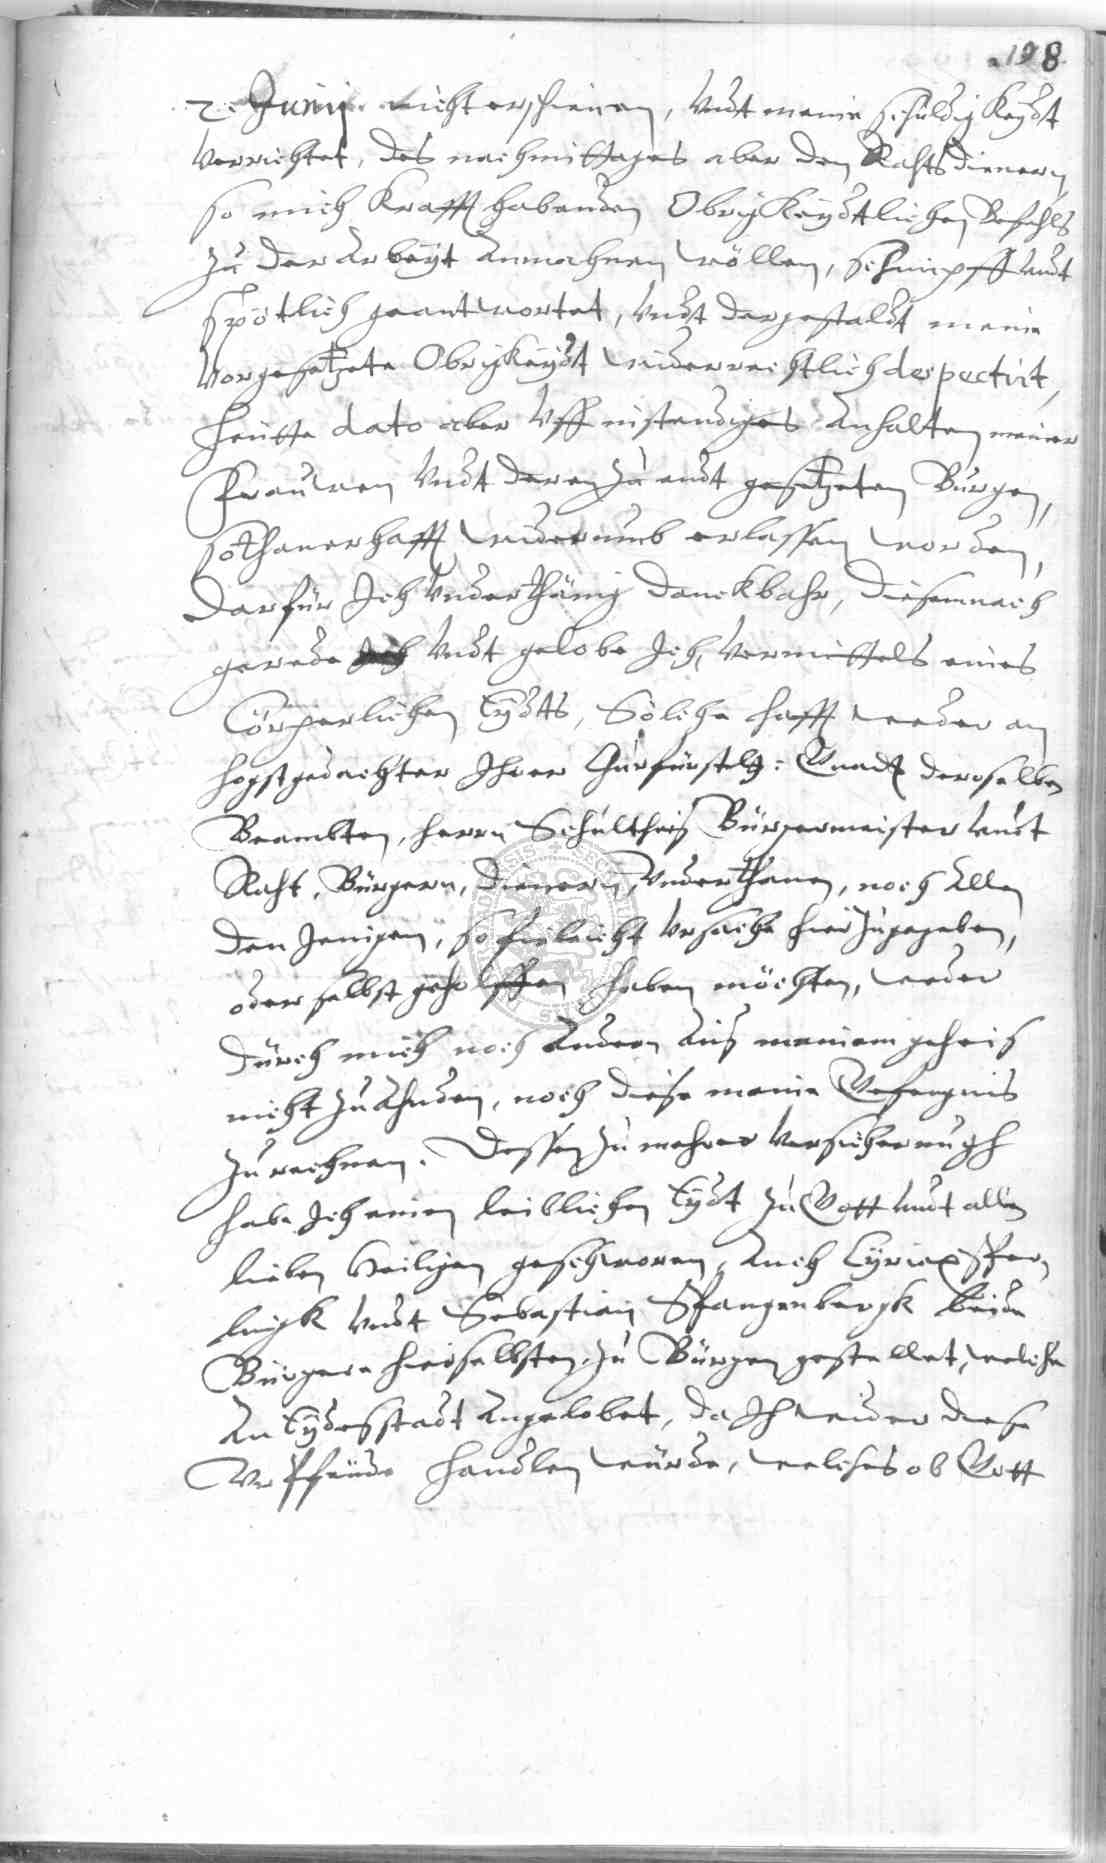 198
2. Junij nicht erschienen, Undt meine schuldig Keÿdt
Verrichtet, des nachmittages aber den Rahts dienern,
so mich Krafft habenden ObrigKeÿdtlichen Befehls
zu der Arbeÿt Anmahnen wöllen, schimpff undt
spötlich geantwortet, Undt dergestaldt meine
Vorgesetzete ObrigKeÿdt widerrechtlich despectirt,
heütte dato aber Uff instendiges Anhalten meiner
Frauwen Undt deren zu endt gesetzeten Bürgen,
sothaner hafft widerumb erlassen worden,
Darfür Ich Underthänig danckbahr, Diesemnach
gerede Undt gelobe Ich, Vermittels eines
Cörperlichen Eÿdts, Solche hafft weder an
hogstgedachter Ihrer Churfürstlg: Gnadt deroselben
Beambten, herrn Schultheis Bürgermeister undt
Raht, Bürgern, Dienern, Underthanen, noch Allen
den Jenigen, so Vieleicht Ursache hierzu gegeben,
oder selbst geholffen haben möchten, weder
durch mich noch Andern Aus meinem geheis
nicht zu Ahnden, noch diese meine Gefengnis
zu rechnen. Dessen zu mehrer Versicherungh
habe Ich einen leiblichen Eÿdt zu Gott undt allen
lieben Heiligen geschworen, Auch Cÿriax
Undt Sebastian Spangenbergk beide
Bürgere hierselbsten, zu Bürgen gestellet, welche
An Eÿdesstadt Angelobet, da Ich wider diese
Urpfeide handlen würde, welches ob Gott